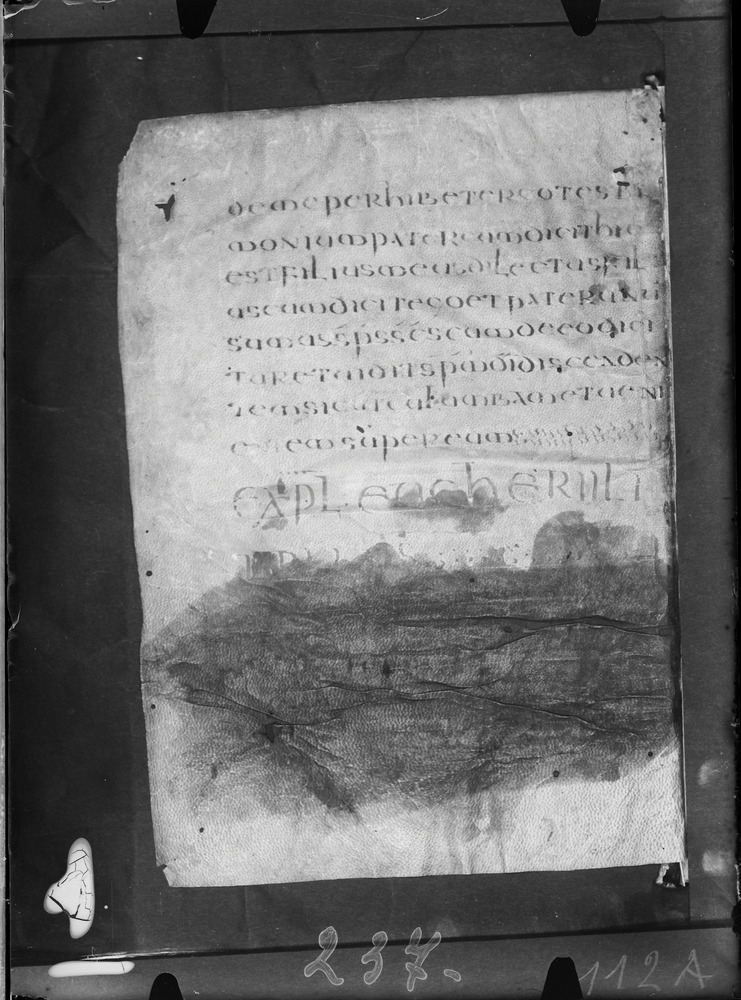 demeperhibeteregotesti
moniumpatercumdicithic
estfiliusmeusdilectusfili
uscumdicitegoetpaterunu
sumusspsscscumdeeodici
turetuiditspmdidiscenden
temsicutcolumbametueni
entemsupereum
EXPL eucherii LI
237.
112A